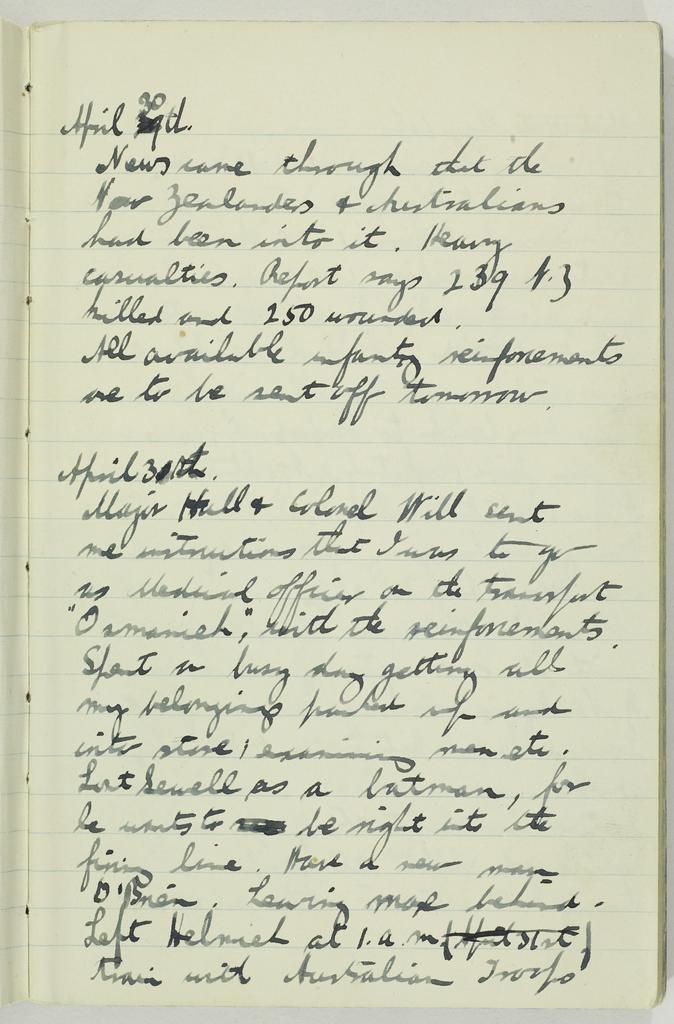 April 30th.
News came through that the
New Zealanders & Australians
had been into it. Heavy
casualties. Report says 239 N.Z
killed and 250 wounded.
All available infantry reinforcements
are to be sent off tomorrow.
April 30th.
Major Hall & Colonel Will sent
me instructions that I was to go
as Medical Officer on the transport
"Osmanieh", with the reinforcements.
Spent a busy day getting all
my belongings packed up and
into store; examining men etc.
Lost Sewell as a batman, for
he wants to be right into the
firing line. Have a new man
O'Brien. Leaving Mac behind.
Left Helmieh at 1. a.m (April 31st)
train with Australian Troops